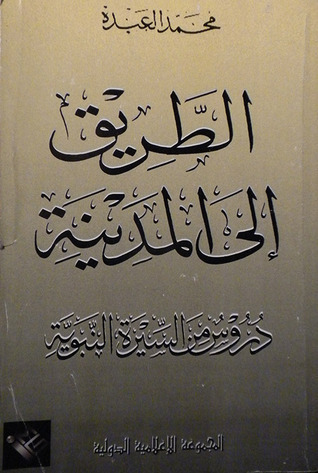 محمد العبدة
الطَّرِيق
إلى المدينة
دُرُوسٌ مِنَ السِّيْرَةِ النَّبَوِيَّةِ
المجموعة الإعلامية الدولية